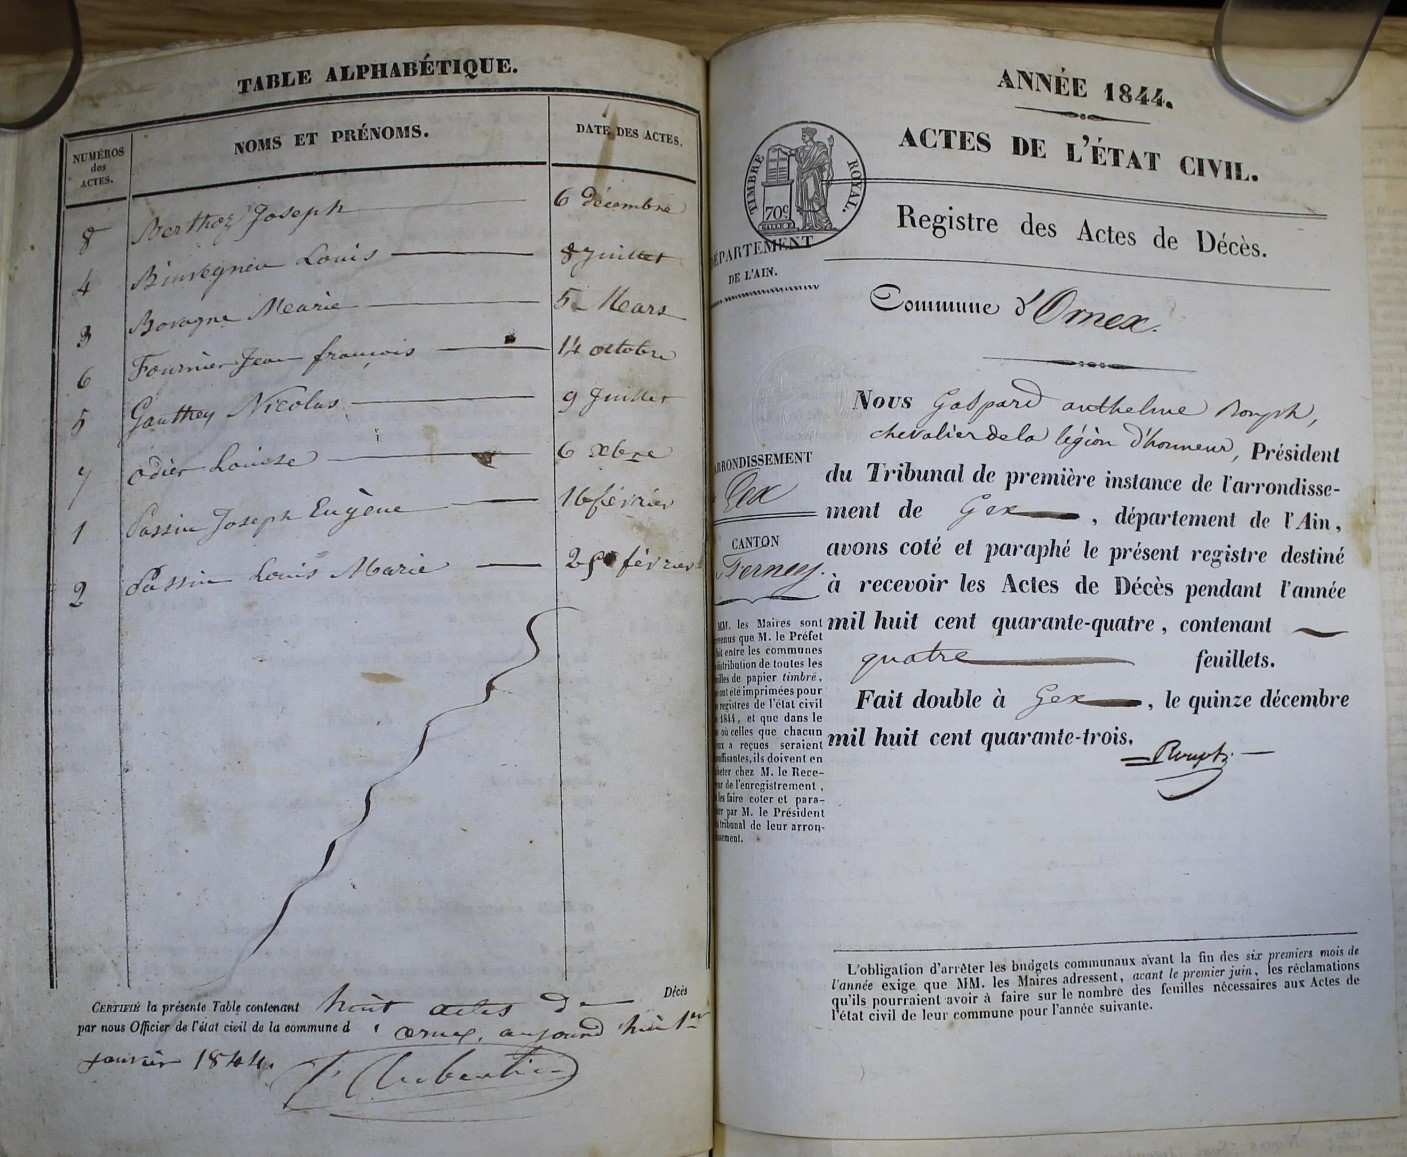 TABLE ALPHABÉTIQUE.
NUMÉROS des ACTES. NOMS ET PRÉNOMS. DATE DES ACTES.
8 Berthoz Joseph 6 décembre
4 Louis 8 Juillet
3 Marie 5 Mars
6 Fournier Jean françois 14 octobre
5 Gauthey Nicolas 9 Juillet
7 odier Louise 6 xbre
1 Passin Joseph Eugène 16 février
2 Passin Louis Marie 25 février
CERTIFIÉ la présente Table contenant huit actes de Décès
par nous Officier de l'état civil de la commune d' ornex, aujourd'hui 1er
janvier 1844.
ANNÉE 1844.
ACTES DE L'ÉTAT CIVIL.
TIMBRE ROYAL.
70c
Registre des Actes de Décès.
DÉPARTEMENT
DE L'AIN.
Commune d'Ornex.
ARRONDISSEMENT
Gex
CANTON
Ferney.
MM. les Maires sont
venus que M. le Préfet
fait entre les communes
distribution de toutes les
feuilles de papier timbré,
ont été imprimées pour
registres de l'état civil
1844, et que dans le
où celles que chacun
a reçues seraient
suffisantes, ils doivent en
acheter chez M. le Rece-
veur de l'enregistrement,
les faire coter et para-
pher par M. le Président
tribunal de leur arron-
dissement.
Nous Gaspard anthelme
chevalier de la légion d'honneur, Président
du Tribunal de première instance de l'arrondisse-
ment de Gex, département de l'Ain,
avons coté et paraphé le présent registre destiné
à recevoir les Actes de Décès pendant l'année
mil huit cent quarante-quatre, contenant
quatre feuillets.
Fait double à Gex, le quinze décembre
mil huit cent quarante-trois.
L'obligation d'arrêter les budgets communaux avant la fin des six premiers mois de
l'année exige que MM. les Maires adressent, avant le premier juin, les réclamations
qu'ils pourraient avoir à faire sur le nombre des feuilles nécessaires aux Actes de
l'état civil de leur commune pour l'année suivante.